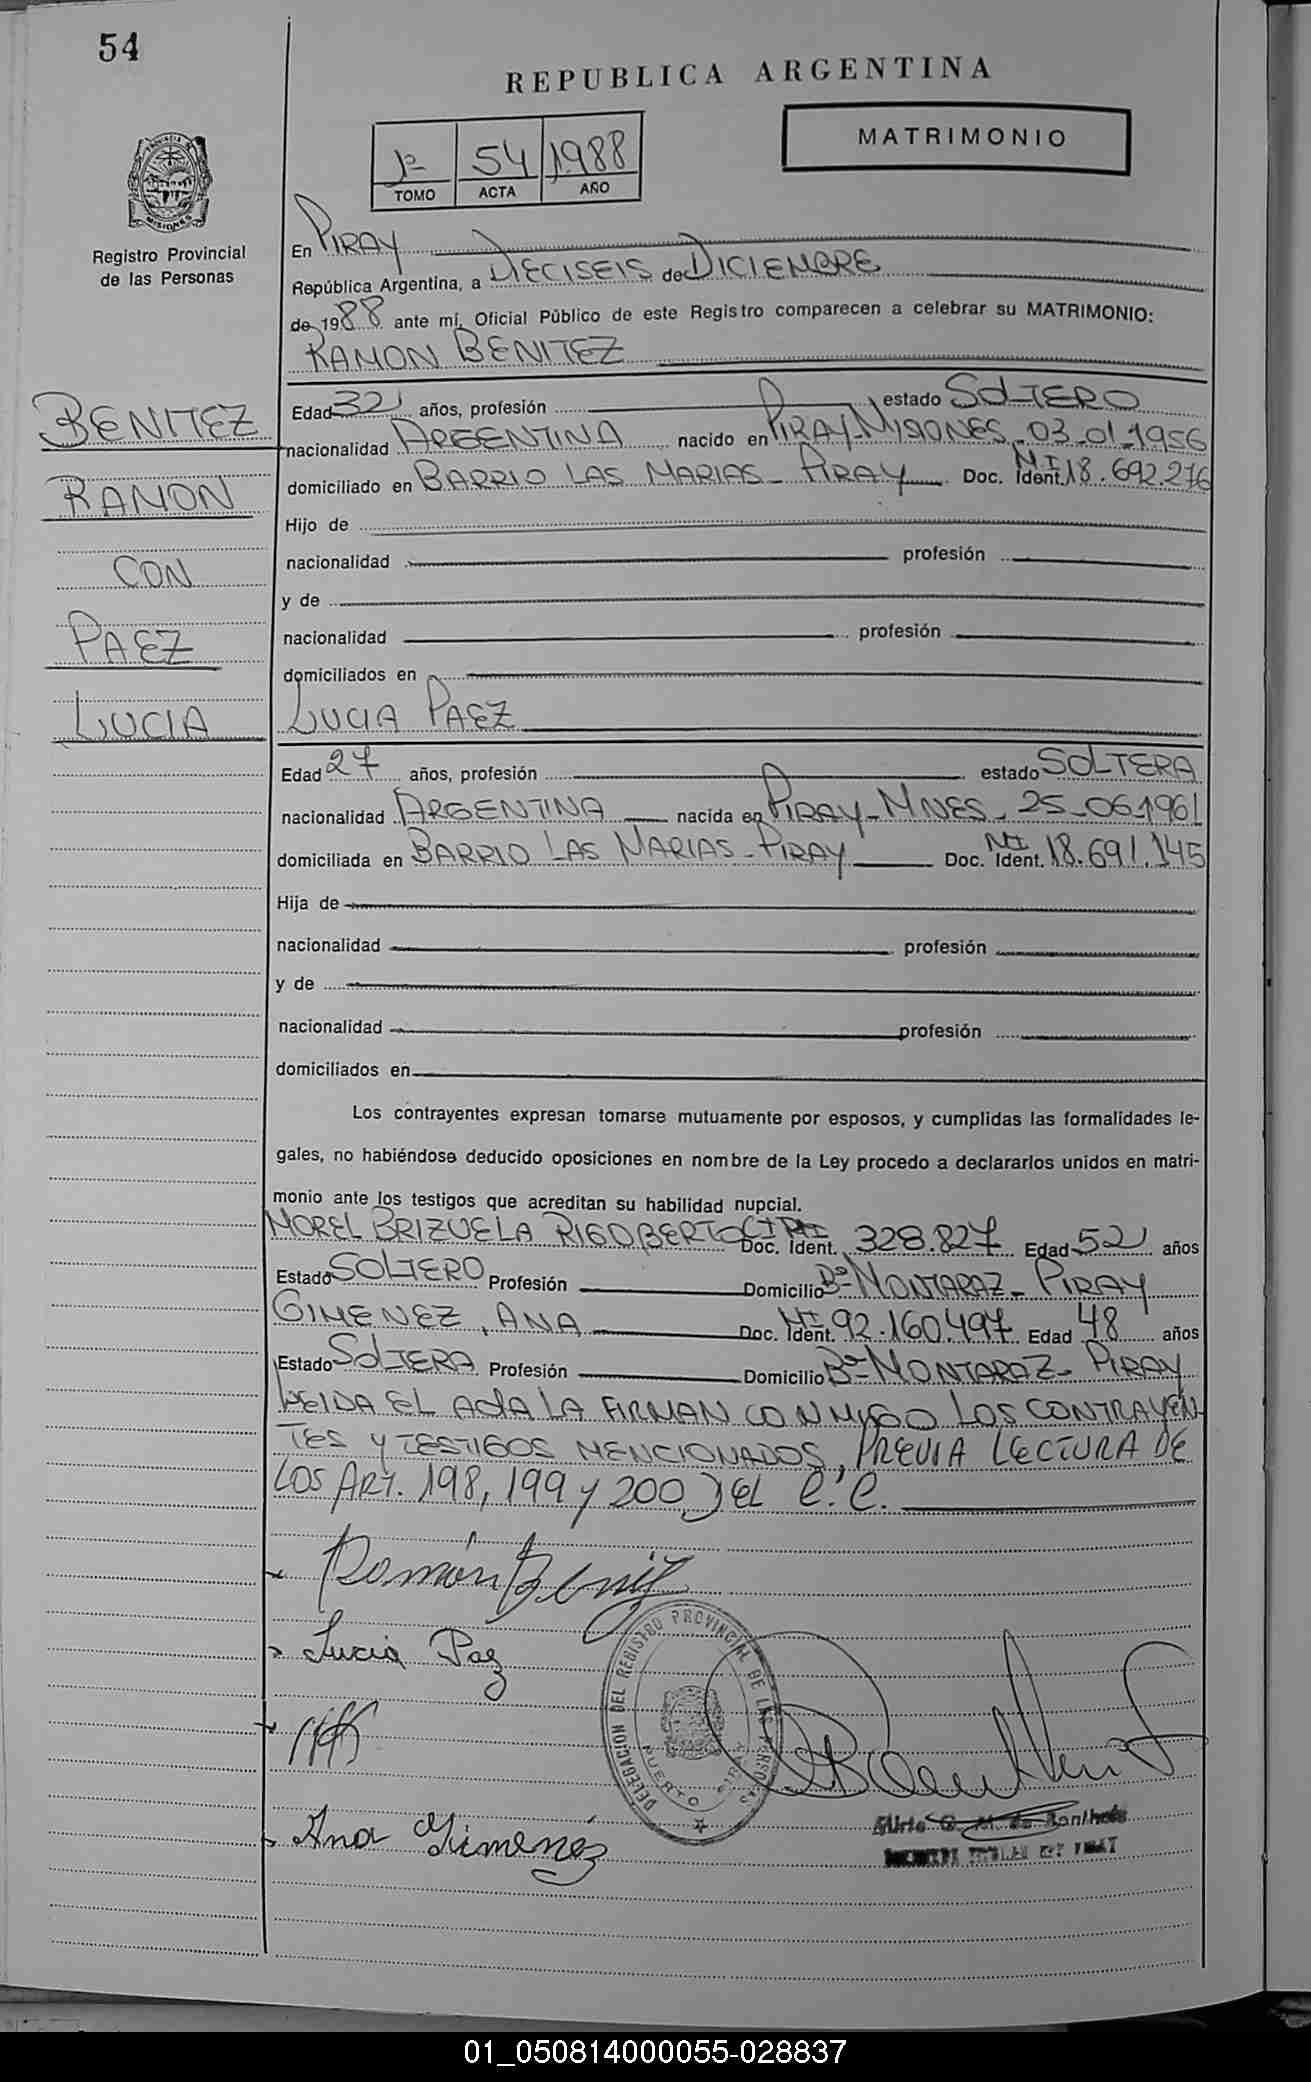 54
REPUBLICA ARGENTINA
MATRIMONIO
1º 54 1988
TOMO ACTA AÑO
MISIONES
Registro Provincial
de las Personas
En PIRAY
República Argentina, a DIECISEIS de DICIEMBRE
de 1988 ante mí, Oficial Público de este Registro comparecen a celebrar su MATRIMONIO:
RAMON BENITEZ
BENITEZ
RAMON
CON
PAEZ
LUCIA
Edad 32 años, profesión estado SOLTERO
nacionalidad ARGENTINA nacido en PIRAY-MISIONES-03-01-1956
domiciliado en BARRIO LAS MARIAS-PIRAY Doc. Ident. MI 18.692.276
Hijo de
nacionalidad profesión
y de
nacionalidad profesión
domiciliados en
LUCIA PAEZ
Edad 27 años, profesión estado SOLTERA
nacionalidad ARGENTINA nacida en PIRAY-MNES-25-06-1961
domiciliada en BARRIO LAS MARIAS-PIRAY Doc. Ident. MI 18.691.145
Hija de
nacionalidad profesión
y de
nacionalidad profesión
domiciliados en
Los contrayentes expresan tomarse mutuamente por esposos, y cumplidas las formalidades le-
gales, no habiéndose deducido oposiciones en nombre de la Ley procedo a declararlos unidos en matri-
monio ante los testigos que acreditan su habilidad nupcial.
MOREL BRIZUELA RIGOBERTO Doc. Ident. 328.827 Edad 52 años
Estado SOLTERO Profesión Domicilio Bº MONTARAZ-PIRAY
GIMENEZ, ANA Doc. Ident. MI 92.160.497 Edad 48 años
Estado SOLTERA Profesión Domicilio Bº MONTARAZ-PIRAY
LEIDA EL ACTA LA FIRMAN CONMIGO LOS CONTRAYEN-
TES Y TESTIGOS MENCIONADOS, PREVIA LECTURA DE
LOS ART. 198, 199 y 200 DEL C.C.
Ramón Beniz
Lucia Paz
DELEGACION DEL REGISTRO PROVINCIAL DE LAS PERSONAS
PUERTO PIRAY
Ana Gimenéz
Mirta G. M. de
01_050814000055-028837